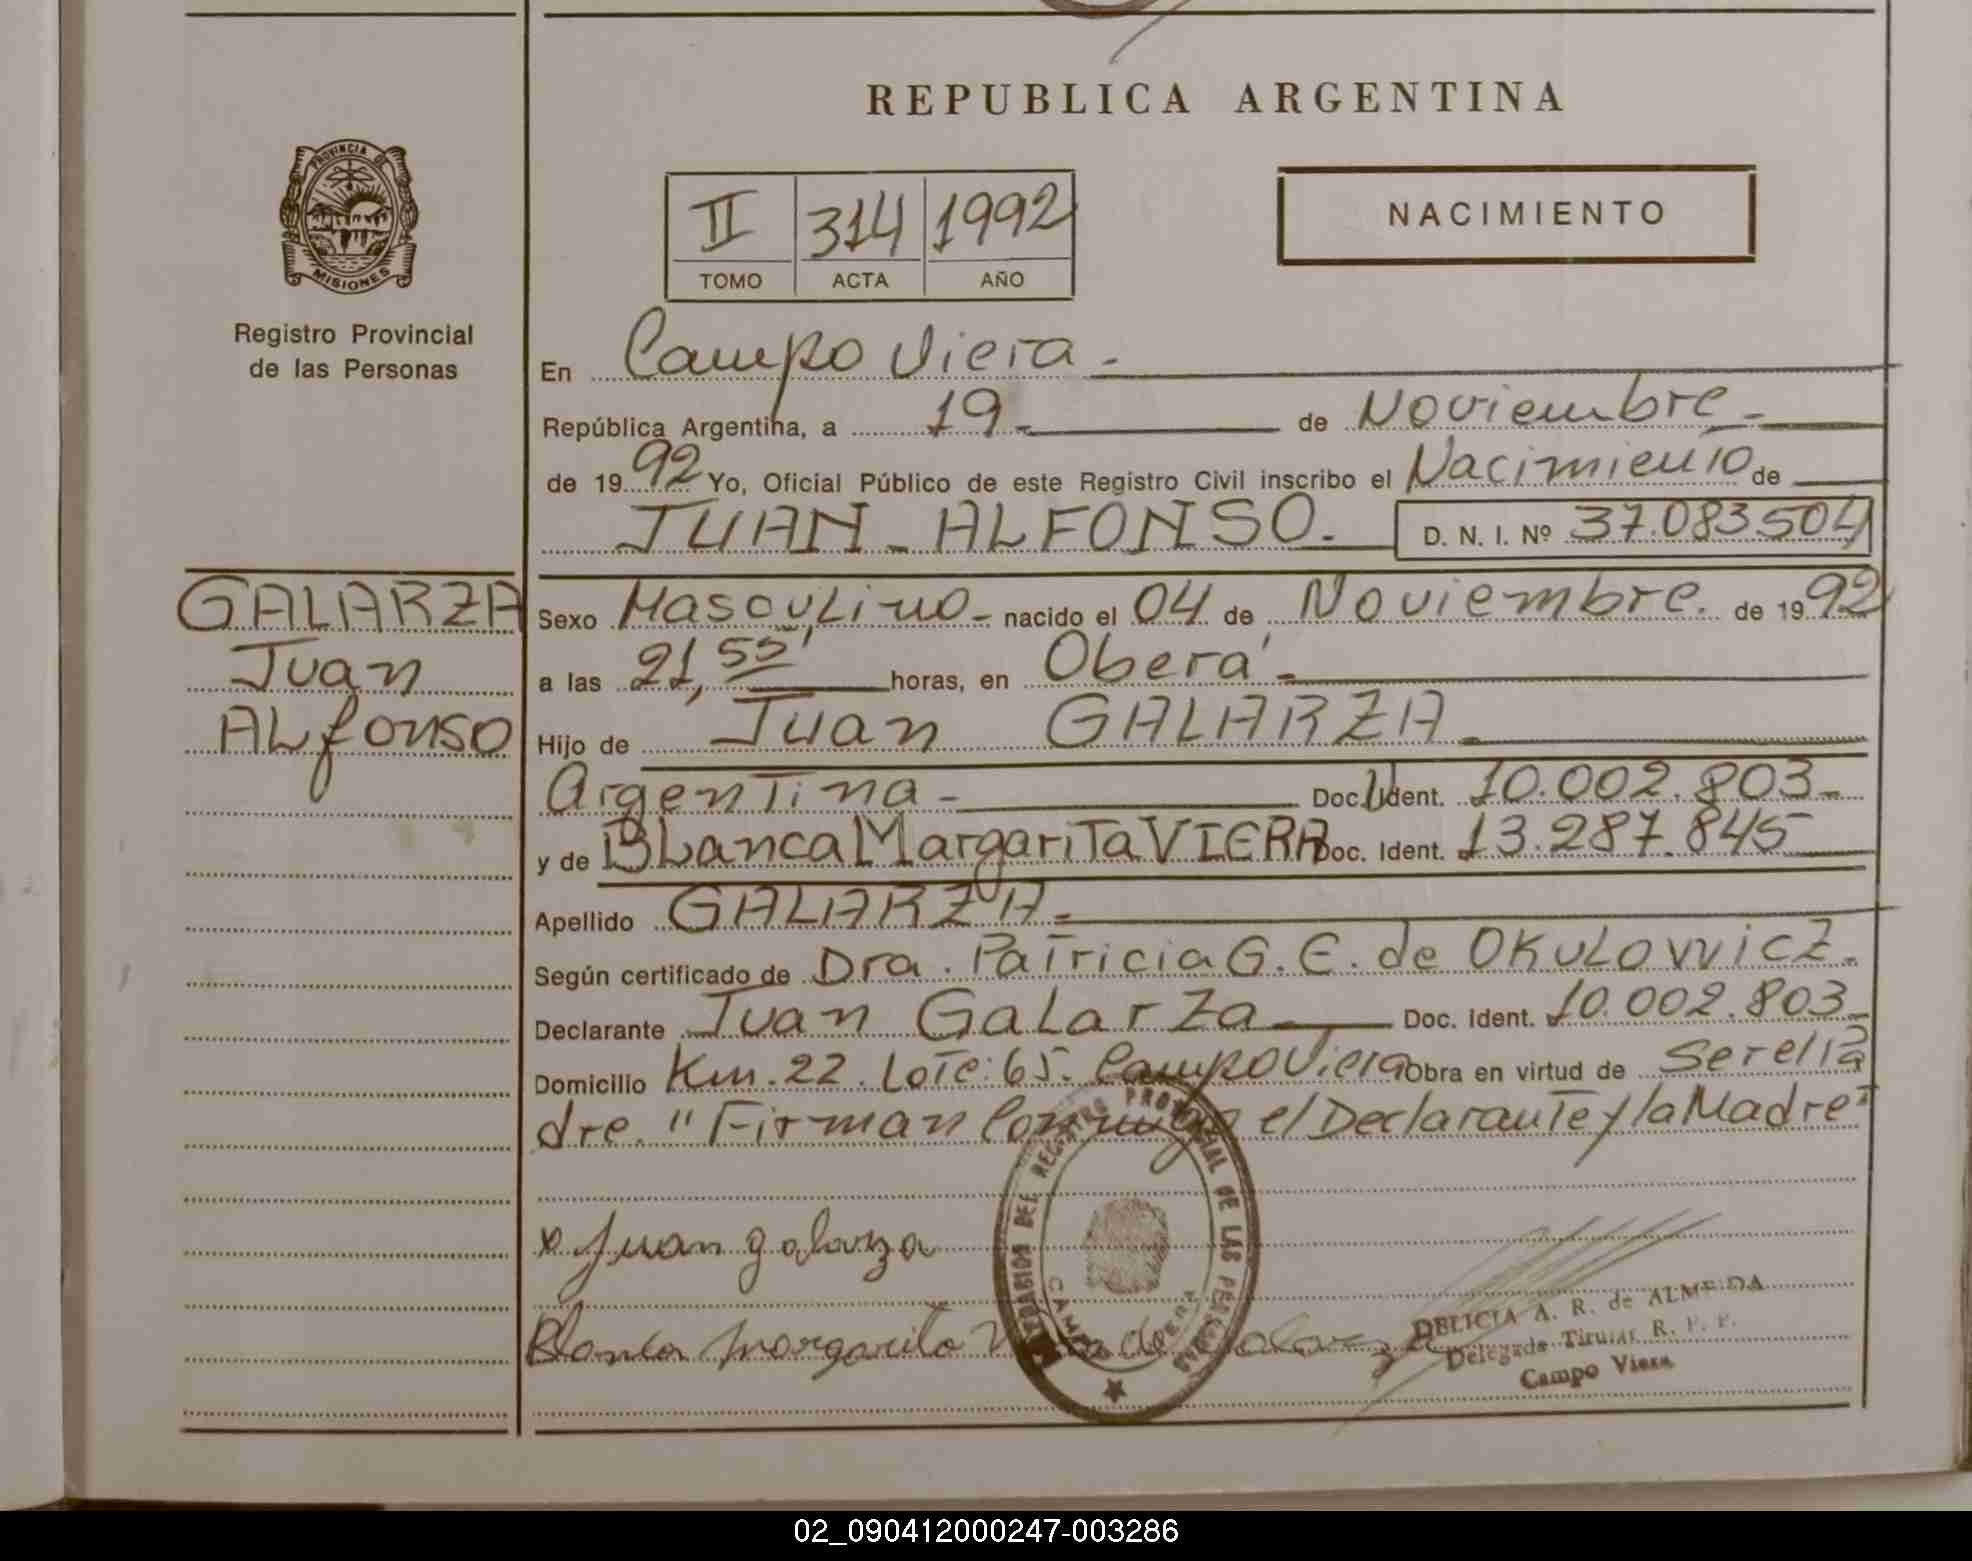 REPUBLICA ARGENTINA
PROVINCIA DE
MISIONES
Registro Provincial
de las Personas
II 314 1992
TOMO ACTA AÑO
NACIMIENTO
En Campo Viera.-
República Argentina, a 19- de Noviembre-
de 1992 Yo, Oficial Público de este Registro Civil inscribo el Nacimiento de
JUAN - ALFONSO.- D. N. I. Nº 37.083.504
GALARZA
Juan
ALfonso
Sexo Masculino- nacido el 04 de Noviembre. de 1992
a las 21,55' horas, en Oberá-
Hijo de Juan GALARZA-
Argentina- Doc. Ident. 10.002.803-
y de BLanca MargariTa VIERA Doc. Ident. 13.287.845
Apellido GALARZA-
Según certificado de Dra. Patricia G. E. de OKULOWICZ.-
Declarante Juan GaLarza- Doc. Ident. 10.002.803-
Domicilio Km. 22. Lote: 65. Campo Viera Obra en virtud de Ser el Pa
dre. "Firman el Declarante y la Madre"
x Juan galarza
Blanca margarita de
REGISTRO PROVINCIAL DE LAS PERSONAS
DELICIA A. R. de ALMEIDA
Delegada Titular R. P. P.
Campo Viera
02_090412000247-003286